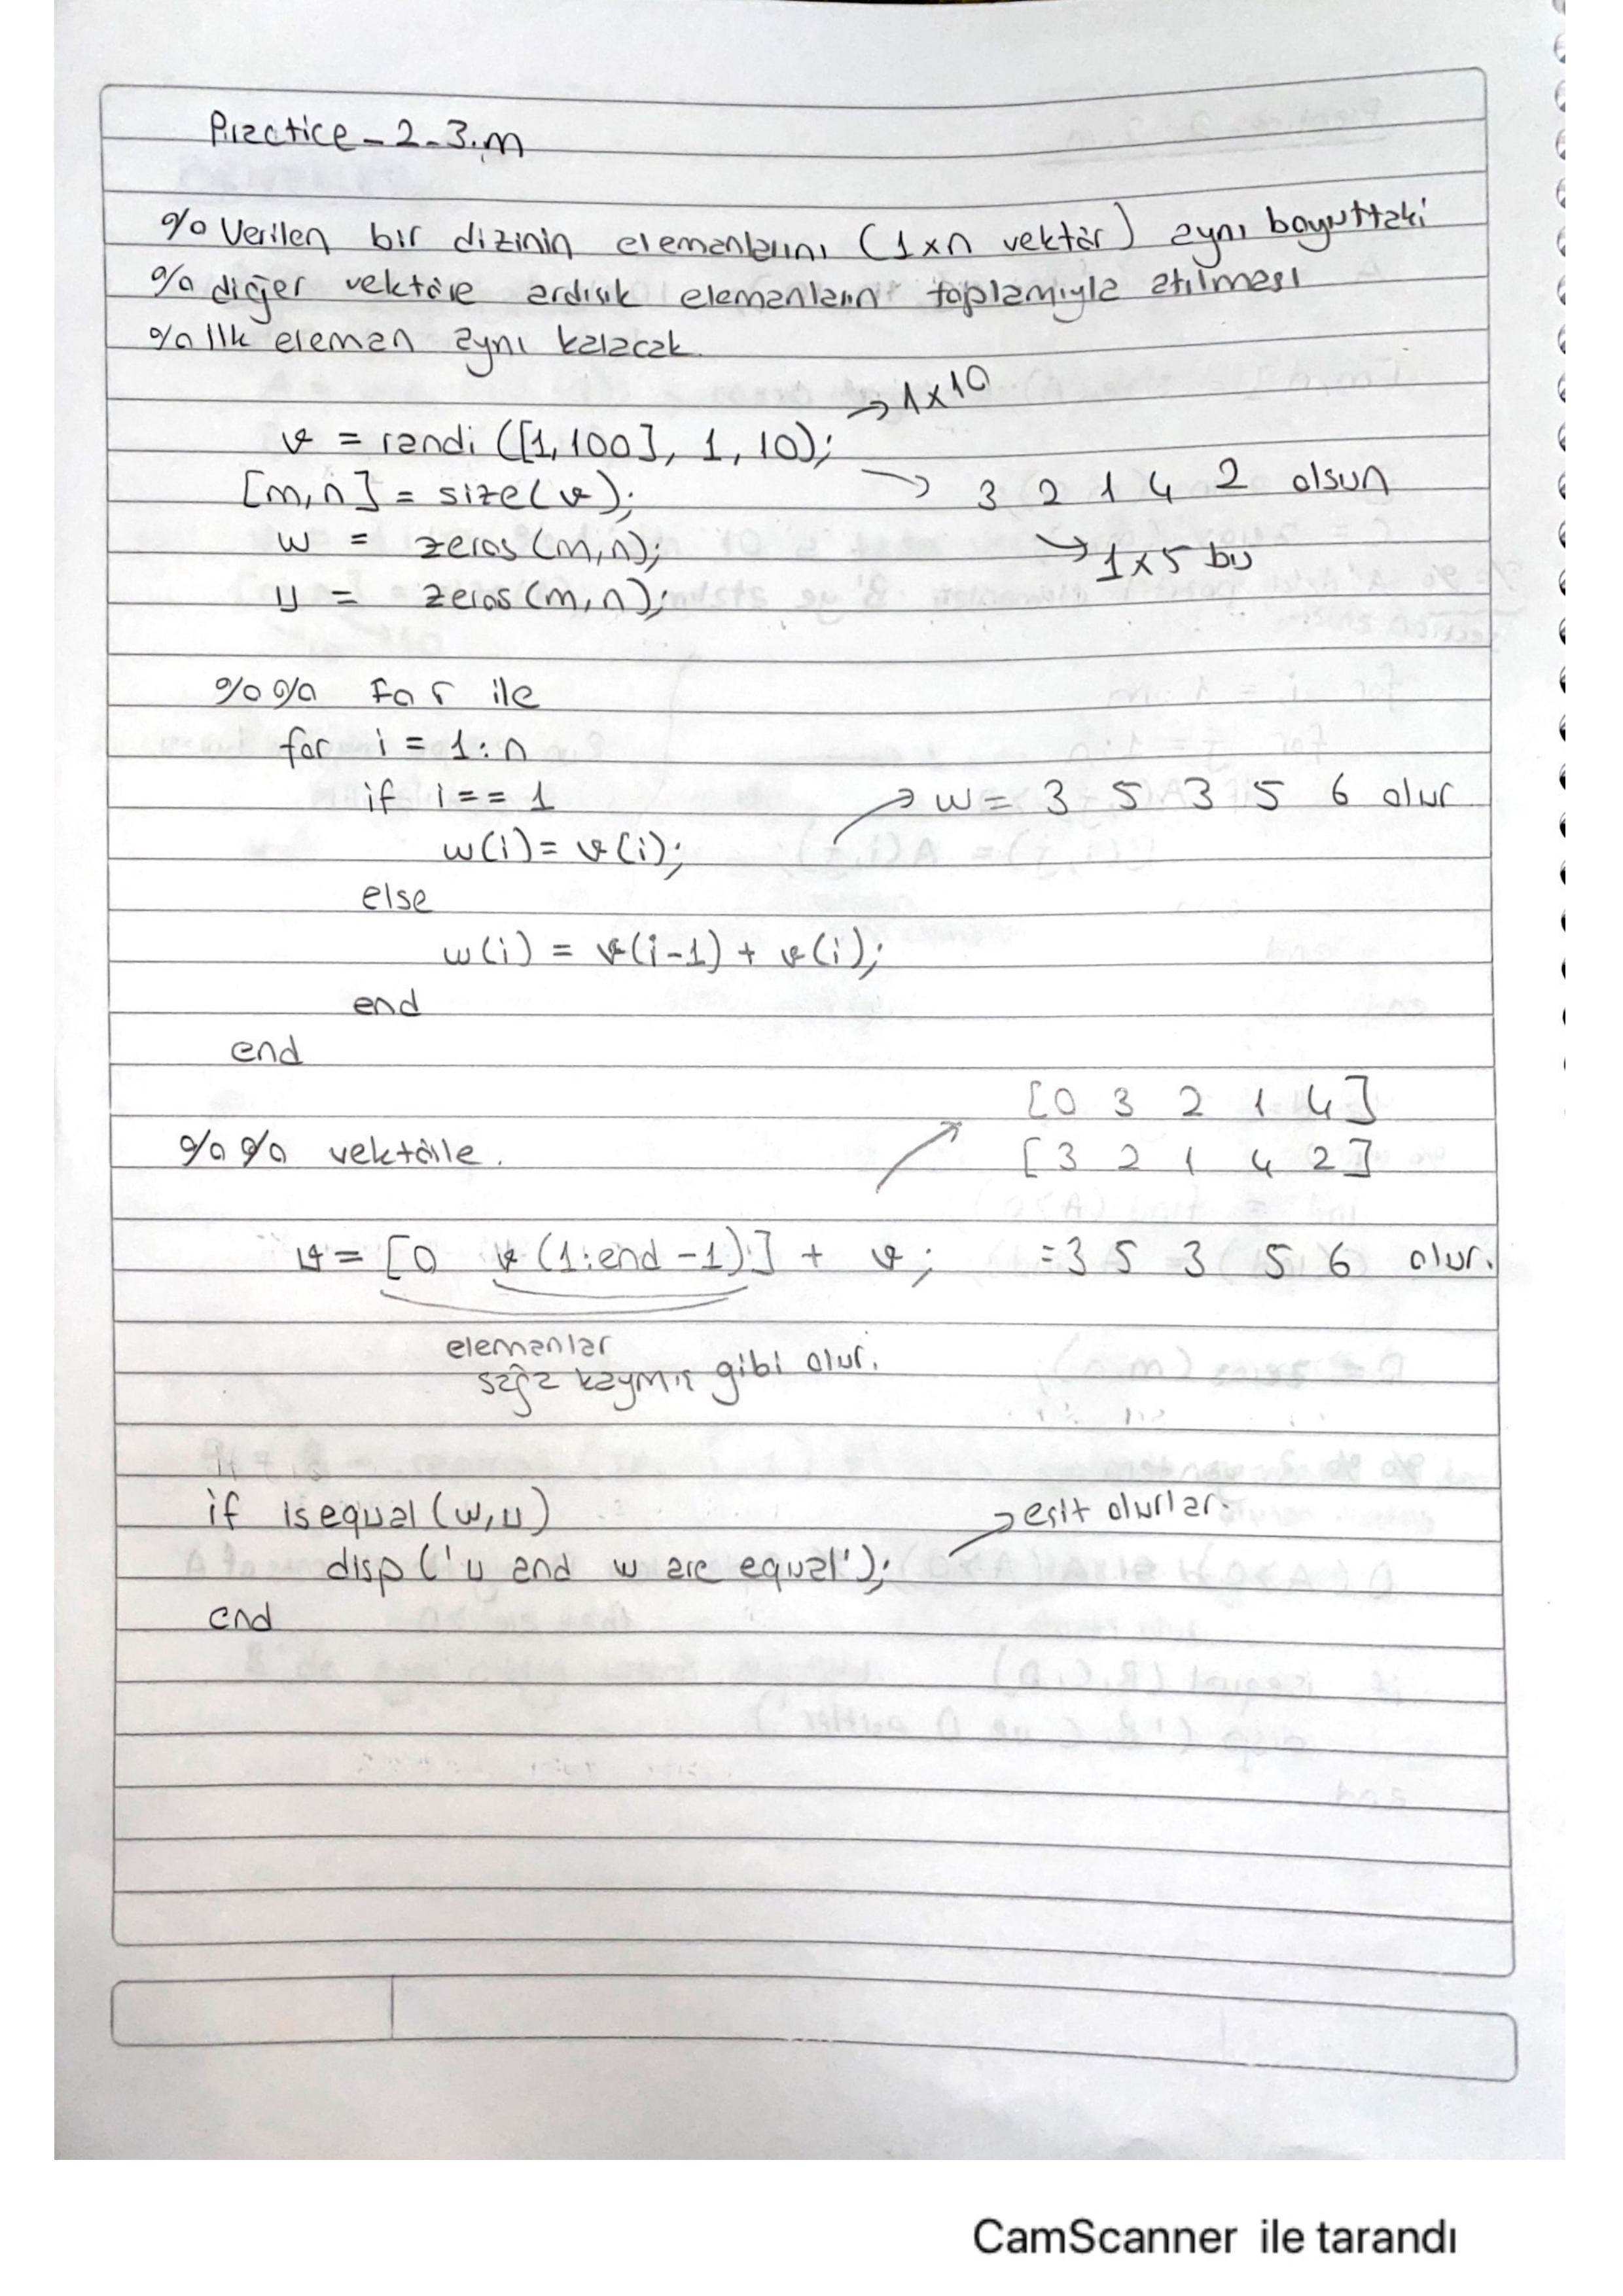 Practice_2_3.m
% Verilen bir dizinin elemanlarını (1xn vektör) aynı boyuttaki
% diğer vektöre ardışık elemanların toplamıyla atılması
% ilk eleman aynı kalacak.
→ 1x10
v = randi([1,100], 1, 10);
[m,n] = size(v); → 3 2 1 4 2 olsun
w = zeros(m,n); → 1x5 bu
u = zeros(m,n);
%% For ile
for i = 1:n
if i == 1 → w = 3 5 3 5 6 olur
w(i) = v(i);
else
w(i) = v(i-1) + v(i);
end
end
[0 3 2 1 4]
%% vektörle. [3 2 1 4 2]
u = [0 v(1:end-1)] + v; = 3 5 3 5 6 olur.
elemanlar
sağa kaymış gibi olur.
if isequal(w,u) → eşit olurlar.
disp('u and w are equal');
end
CamScanner ile tarandı